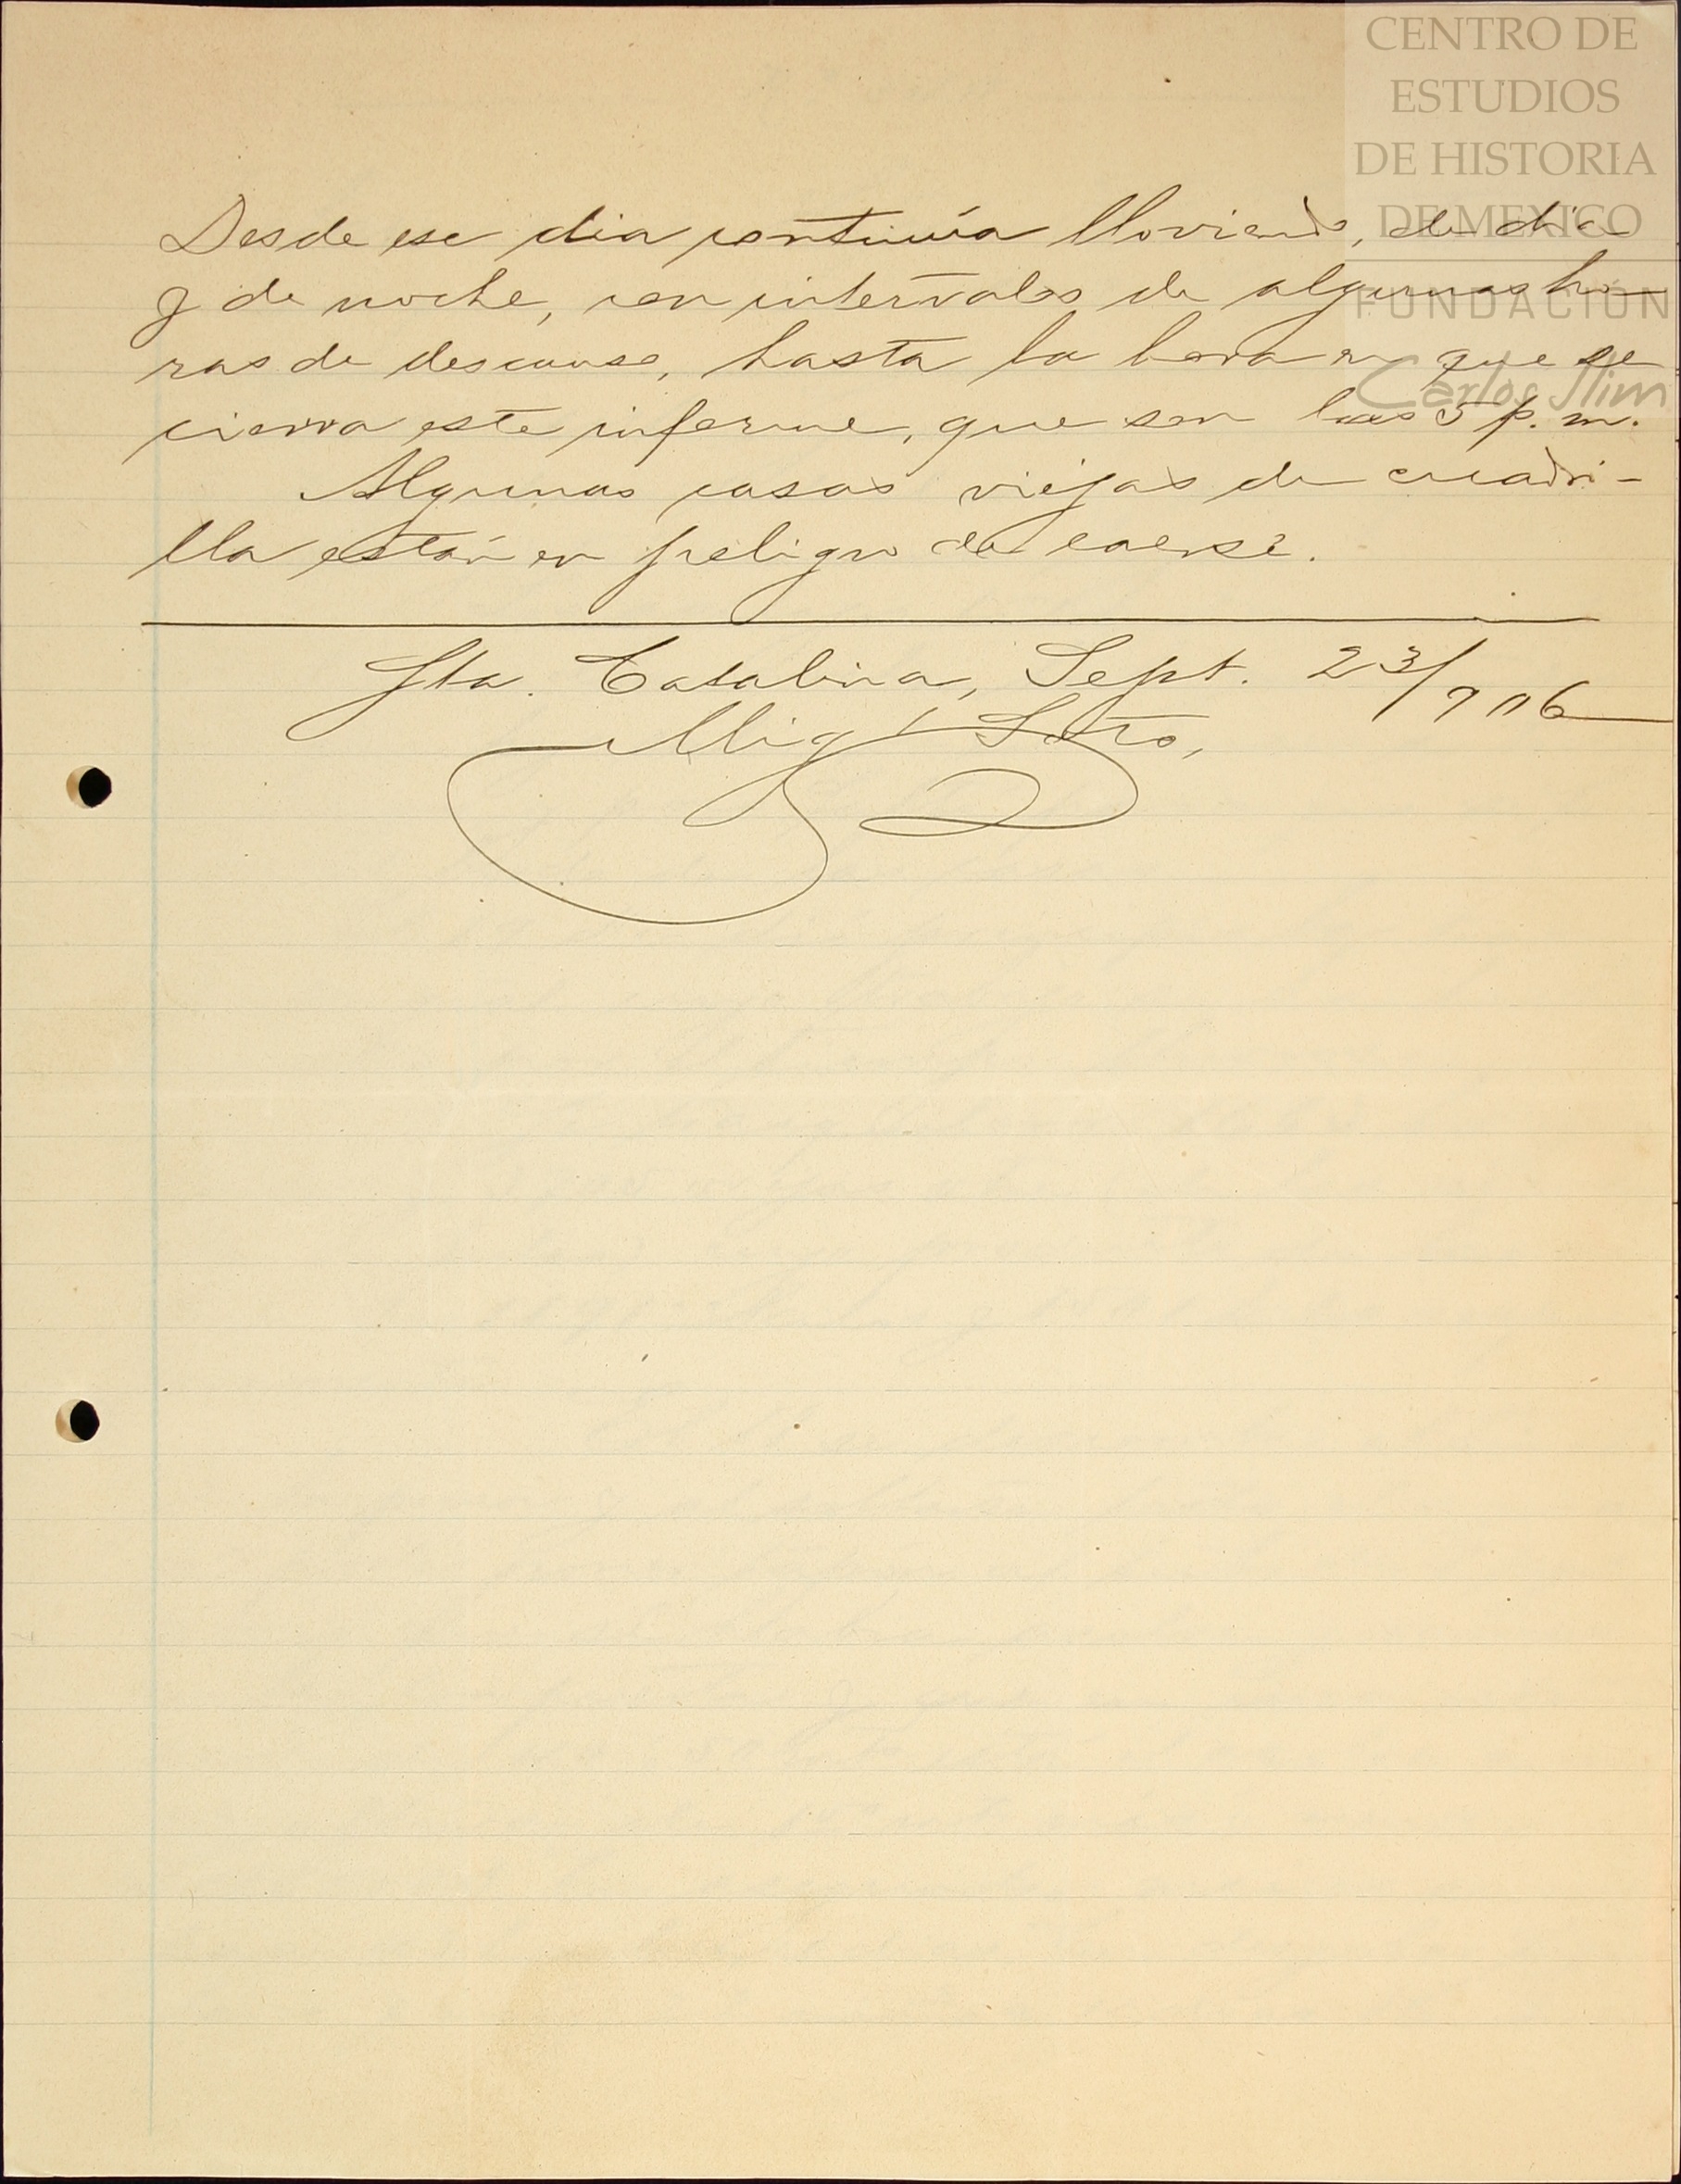 CENTRO DE
ESTUDIOS
DE HISTORIA
DE MEXICO
FUNDACIÓN
Carlos Slim
Desde ese dia continúa lloviendo, de dia
y de noche, con intervalos de algunas ho-
ras de descanso, hasta la hora en que se
cierra este informe, que son las 5 p. m.
Algunas casas viejas de cuadri-
lla están en peligro de caerse.
Sta. Catalina, Sept. 23/906
Migl Soto,